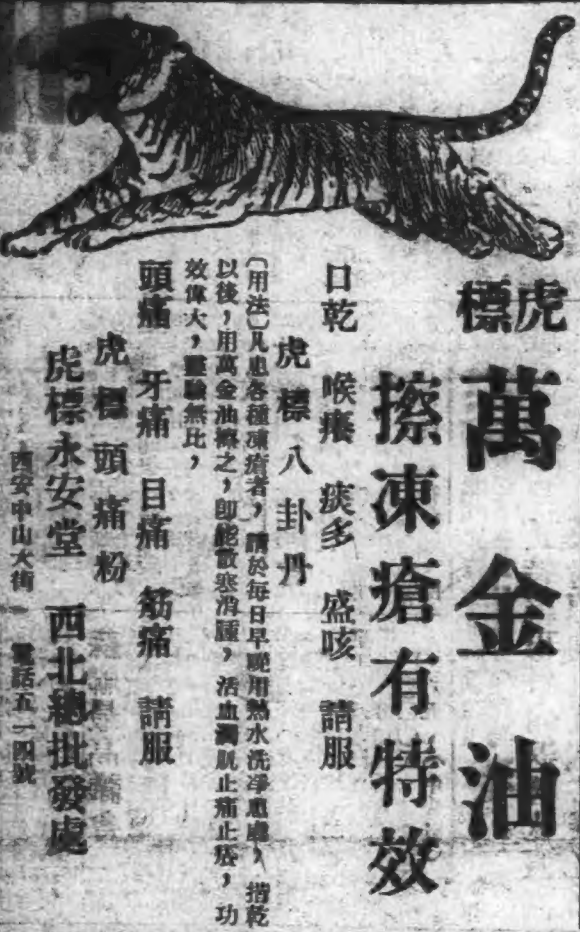 虎標
萬金油
擦凍瘡有特效
口乾 喉癢 痰多 盛咳 請服
虎標八卦丹
〔用法〕凡患各種凍瘡者，請於每日早晚用熱水洗淨患處，揩乾
以後，用萬金油擦之，即能散寒消腫，活血潤肌止痛止癢，功
效偉大，靈驗無比，
頭痛 牙痛 目痛 筋痛 請服
虎標頭痛粉
虎標永安堂 西北總批發處
西安中山大街 電話五一四號